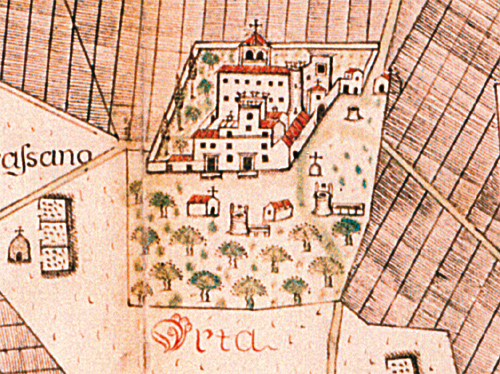 aſsano
Orta